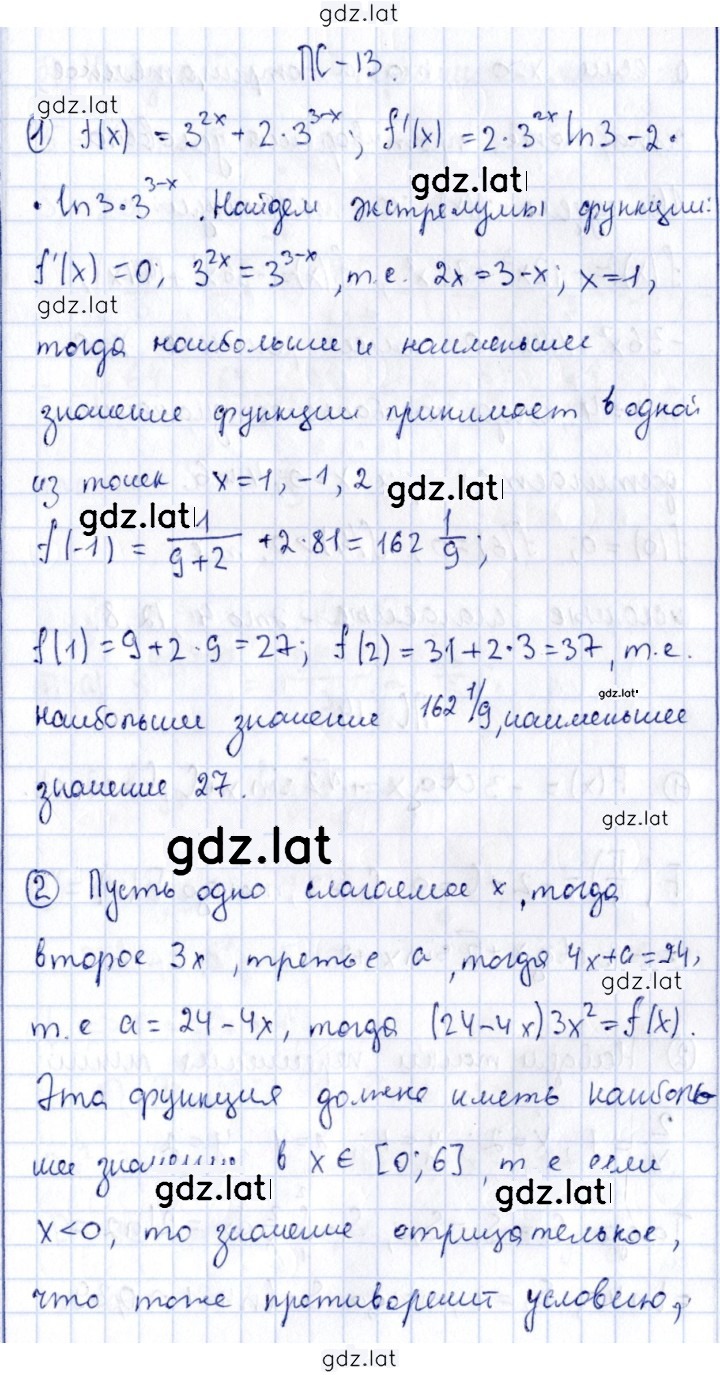 gdz.lat
ПС-13.
gdz.lat
① f(x) = 3^{2x} + 2·3^{3-x}; f'(x) = 2·3^{2x} ln3 - 2·
gdz.lat
· ln3·3^{3-x}. Найдем экстремумы функции:
f'(x) = 0; 3^{2x} = 3^{3-x}, т.е. 2x = 3-x; x = 1,
gdz.lat
тогда наибольшие и наименьшее
значение функции принимает в одной
из точек x = 1, -1, 2
gdz.lat
gdz.lat
f(-1) = 1/(9+2) + 2·81 = 162 1/9;
f(1) = 9 + 2·9 = 27; f(2) = 31 + 2·3 = 37, т.е.
gdz.lat
наибольшее значение 162 1/9, наименьшее
значение 27.
gdz.lat
gdz.lat
② Пусть одно слагаемое x, тогда
второе 3x, третье a, тогда 4x+a=24,
gdz.lat
т.е a = 24-4x, тогда (24-4x)3x² = f(x).
Эта функция должна иметь наиболь-
шее в x ∈ [0;6], т е если
gdz.lat
gdz.lat
x<0, то значение отрицательное,
что тоже противоречит условию,
gdz.lat